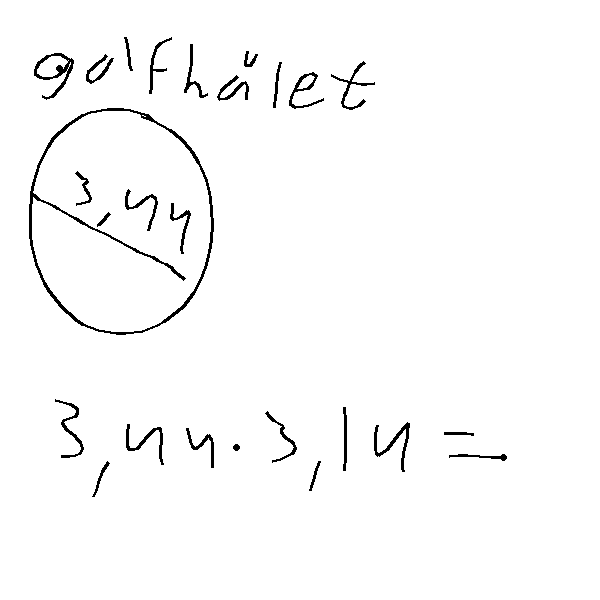 golfhålet
3,44
3,44·3,14=